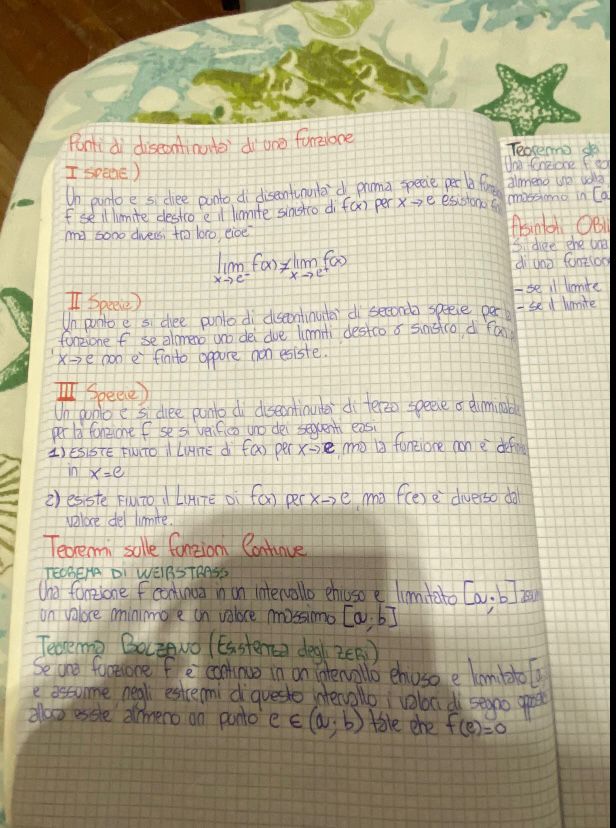 Punti di discontinuità di una funzione
I SPECIE)
Un punto c si dice punto di discontinuità di prima specie per la funz
f se il limite destro e il limite sinistro di f(x) per x→c esistono
ma sono diversi tra loro, cioè
lim f(x) ≠ lim f(x)
x→c⁻ x→c⁺
II Specie)
Un punto c si dice punto di discontinuità di seconda specie per la
funzione f se almeno uno dei due limiti destro o sinistro, di f(x)
x→c non è finito oppure non esiste.
III Specie)
Un punto c si dice punto di discontinuità di terza specie o eliminabi
per la funzione f se si verifica uno dei seguenti casi
1) ESISTE FINITO il LIMITE di f(x) per x→c, ma la funzione non è defin
in x=c
2) esiste FINITO il LIMITE DI f(x) per x→c, ma f(c) è diverso dal
valore del limite.
Teoremi sulle funzioni Continue
TEOREMA DI WEIRSTRASS
Una funzione f continua in un intervallo chiuso e limitato [a;b]
un valore minimo e un valore massimo [a;b]
Teorema BOLZANO (Esistenza degli ZERI)
Se una funzione f è continua in un intervallo chiuso e limitato [a
e assume, negli estremi di questo intervallo, i valori di segno oppos
allora esiste almeno un punto c ∈ (a;b) tale che f(c)=0
Teorema de
Una funzione f co
almeno una volta
massimo in [a
Asintoti OBLI
Si dice che una
di una funzion
- se il limite
- se il limite